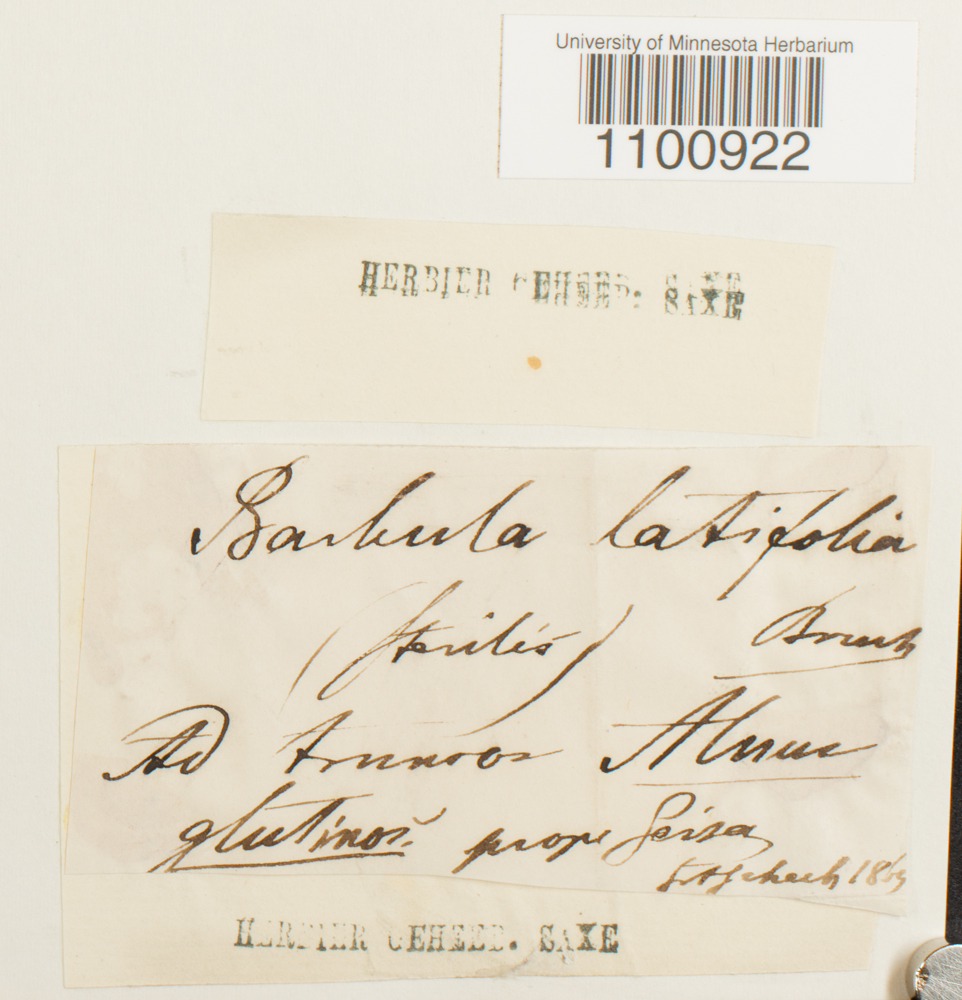 University of Minnesota Herbarium
1100922
HERBIER GEHEEB. SAXE
Barbula latifolia
(sterilis) Bruch
Ad truncos Alnus
glutinos. prope Geisa
Geheeb 186
HERBIER GEHEEB. SAXE